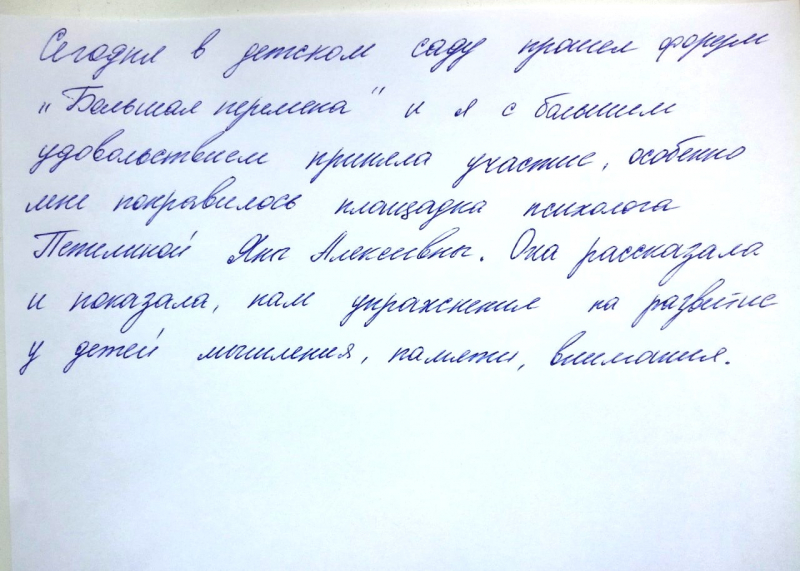 Сегодня в детском саду прошел форум
„Большая перемена" и я с большим
удовольствием приняла участие, особенно
мне понравилось площадка психолога
Петелиной Яны Алексеевны. Она рассказала
и показала, нам упражнения на развитие
у детей мышления, памяти, внимания.